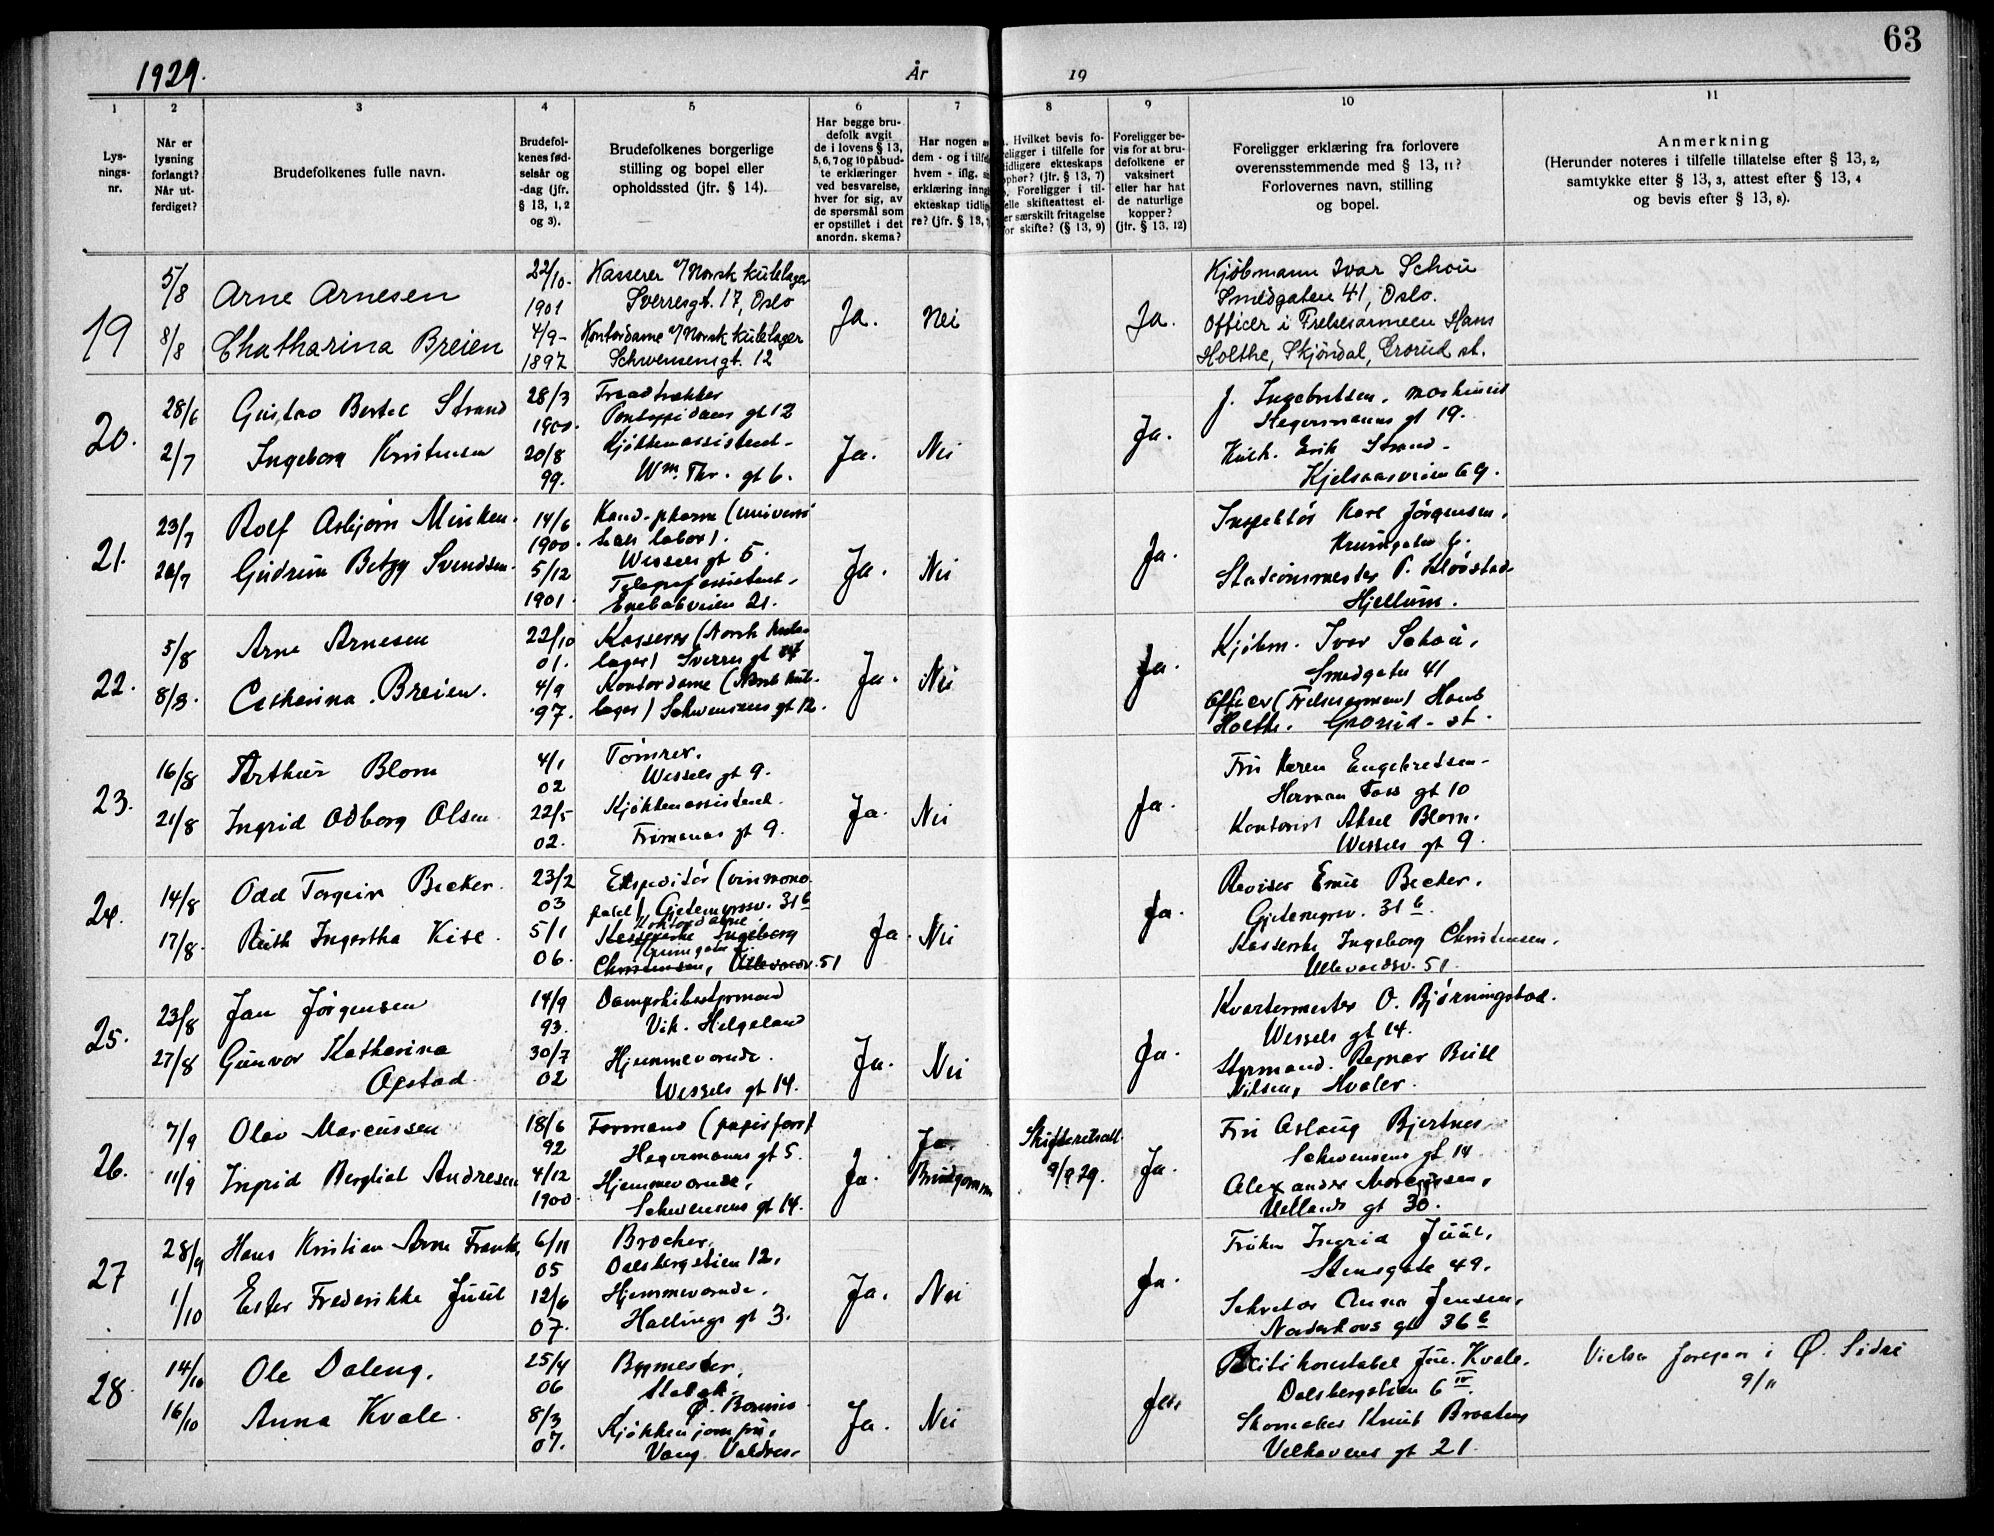 63
1929.
År
19
1
2
3
4
5
6
7
8
9
10
11
Lys-
nings-
nr.
Når er
lysning
forlangt?
Når ut-
ferdiget?
Brudefolkenes fulle navn.
Brudefol-
kenes fød-
selsår og
-dag (jfr.
§ 13, 1, 2
og 3).
Brudefolkenes borgerlige
stilling og bopel eller
opholdssted (jfr. § 14).
Har begge bru-
defolk avgit
de i lovens § 13,
5, 6, 7 og 10 påbud-
te erklæringer
ved besvarelse,
hver for sig, av
de spørsmål som
er opstillet i det
anordn. skema?
Har nogen
dem - og i tilfe
hvem - iflg.
erklæring inng
ekteskap tidlig
re? (jfr. § 13,
Hvilket bevis fo-
religger i tilfelle for
tidligere ekteskaps
ophør? (jfr. § 13, 7)
Foreligger i til-
felle skifteattest el-
er særskilt fritagelse
for skifte? (§ 13, 9)
Foreligger be-
vis for at bru-
defolkene er
vaksinert
eller har hat
de naturlige
kopper?
(jfr. § 13, 12)
Foreligger erklæring fra forlovere
overensstemmende med § 13, 11?
Forlovernes navn, stilling
og bopel.
Anmerkning
(Herunder noteres i tilfelle tillatelse efter § 13, 2,
samtykke efter § 13, 3, attest efter § 13, 4
og bevis efter § 13, 8).
19
5/8
8/8
Arne Arnesen
Chatharina Breien
22/10-
1901
4/9-
1897
Kasserer v/Norsk kulelager
Sverresgt. 17, Oslo
Kontordame v/Norsk kulelager
Schwensensgt. 12
Ja.
Nei
Ja.
Kjøbmann Ivar Schou
Smedgaten 41, Oslo.
Officer i Frelsesarmeen Hans
Holthe, Skjøndal, Grorud st.
20.
28/6
2/7
Gustav Bertel Strand
Ingeborg Kristensen
28/3
1900.
20/8
99.
Traadtrækker
Pontoppidans gt 12
Kjøkkenassistent-
Wm. Thr. gt 6.
Ja.
Nei
Ja.
J. Ingebretsen, maskinist
Hegermanns gt 19.
Erik Strand-
Kjelsaasveien 69.
21.
23/7
26/7
Rolf Asbjørn
Gudrun Betzy Svendsen.
14/6
1900.
5/12
1901.
Kand. pharm (Universi-
tets labor).
Wessels gt 5.
Telegrafassistent-
Enebakveien 21.
Ja.
Nei
Ja.
Inspektør Karl Jørgensen,
Stationsmester P.
Hjellum.
22.
5/8
8/8
Arne Arnesen
Catharina Breien.
22/10
01.
4/9
97.
Kasserer (Norsk kule-
lager) Sverres gt 17
Kontordame (Norsk kule-
lager) Schwensens gt 12.
Ja.
Nei
Ja.
Kjøbm. Ivar Schou,
Smedgaten 41
Officer (Frelsesarmeen) Hans
Holthe. Grorud - st.
23.
16/8
21/8
Arthur Blom
Ingrid Odborg Olsen
4/1
02
22/5
02.
Tømrer.
Wessels gt 9.
Kjøkkenassistent.
Frimanns gt 9.
Ja.
Nei
Ja.
Fru Karen Engebretsen-
Herman Foss gt 10
Kontorist Aksel Blom.
Wessels gt 9.
24.
14/8
17/8.
Odd Torgeir Becker.
Ruth Ingertha Kise.
23/2
03
5/1
06.
Ekspeditør (vinmono-
polet) Gjetemyrsv. 31b
Kontordame.
Kassererske Ingeborg
Christensen, Ullevaalsv. 51
Ja.
Nei
Ja.
Revisor Emil Becker.
Gjetemyrsv. 31b.
Kasserske Ingeborg Christensen.
Ullevaalsv. 51.
25.
23/8
27/8
Jan Jørgensen
Gunvor Katharina
Opstad.
14/9
93.
30/7
02
Dampskibsstyrmand
Vik. Helgeland
Hjemmeværende.
Wessels gt 14.
Ja.
Nei
Ja.
Kvartermester O. Bjørningstad.
Wessels gt 14.
Styrmand. Ragnar Bull
Nilsen, Hvaler.
26.
7/9
11/9
Olav Marcussen
Ingrid Bergliot Andresen
18/6
92
4/12
1900.
Formand (papirforr.)
Hegermanns gt 5.
Hjemmeværende,
Schwensens gt 14.
Ja.
Ja.
Brudgommen
Skifteretsatt.
9/9 29.
Ja.
Fru Aslaug Bjertnes
Schwensens gt 14
Alexander Marcussen,
Uellands gt 30.
27
28/9
1/10
Hans Kristian Arne Frank
Ester Frederikke Juul
6/11
05
12/6
07.
Brocher.
Dalsbergstien 12.
Hjemmeværende.
Hallings gt 3.
Ja.
Nei
Ja.
Frøken Ingrid Juul,
Stensgate 49.
Sekretær Anna Jensen,
Norderhovs gt 36b
28.
14/10
16/10
Ole Daleng.
Anna Kvale.
25/4
06
8/3
07.
Bygmester,
Stabæk.
Ø. Bærum
Kjøkkenjomfru,
Vang. Valdres.
Ja.
Nei
Ja.
Politikonstabel Kvale.
Dalsbergstien 6 IV.
Skomaker Knut Braaten
Velhavens gt 21.
Vielsen foregaar i Ø. Slidre
9/11